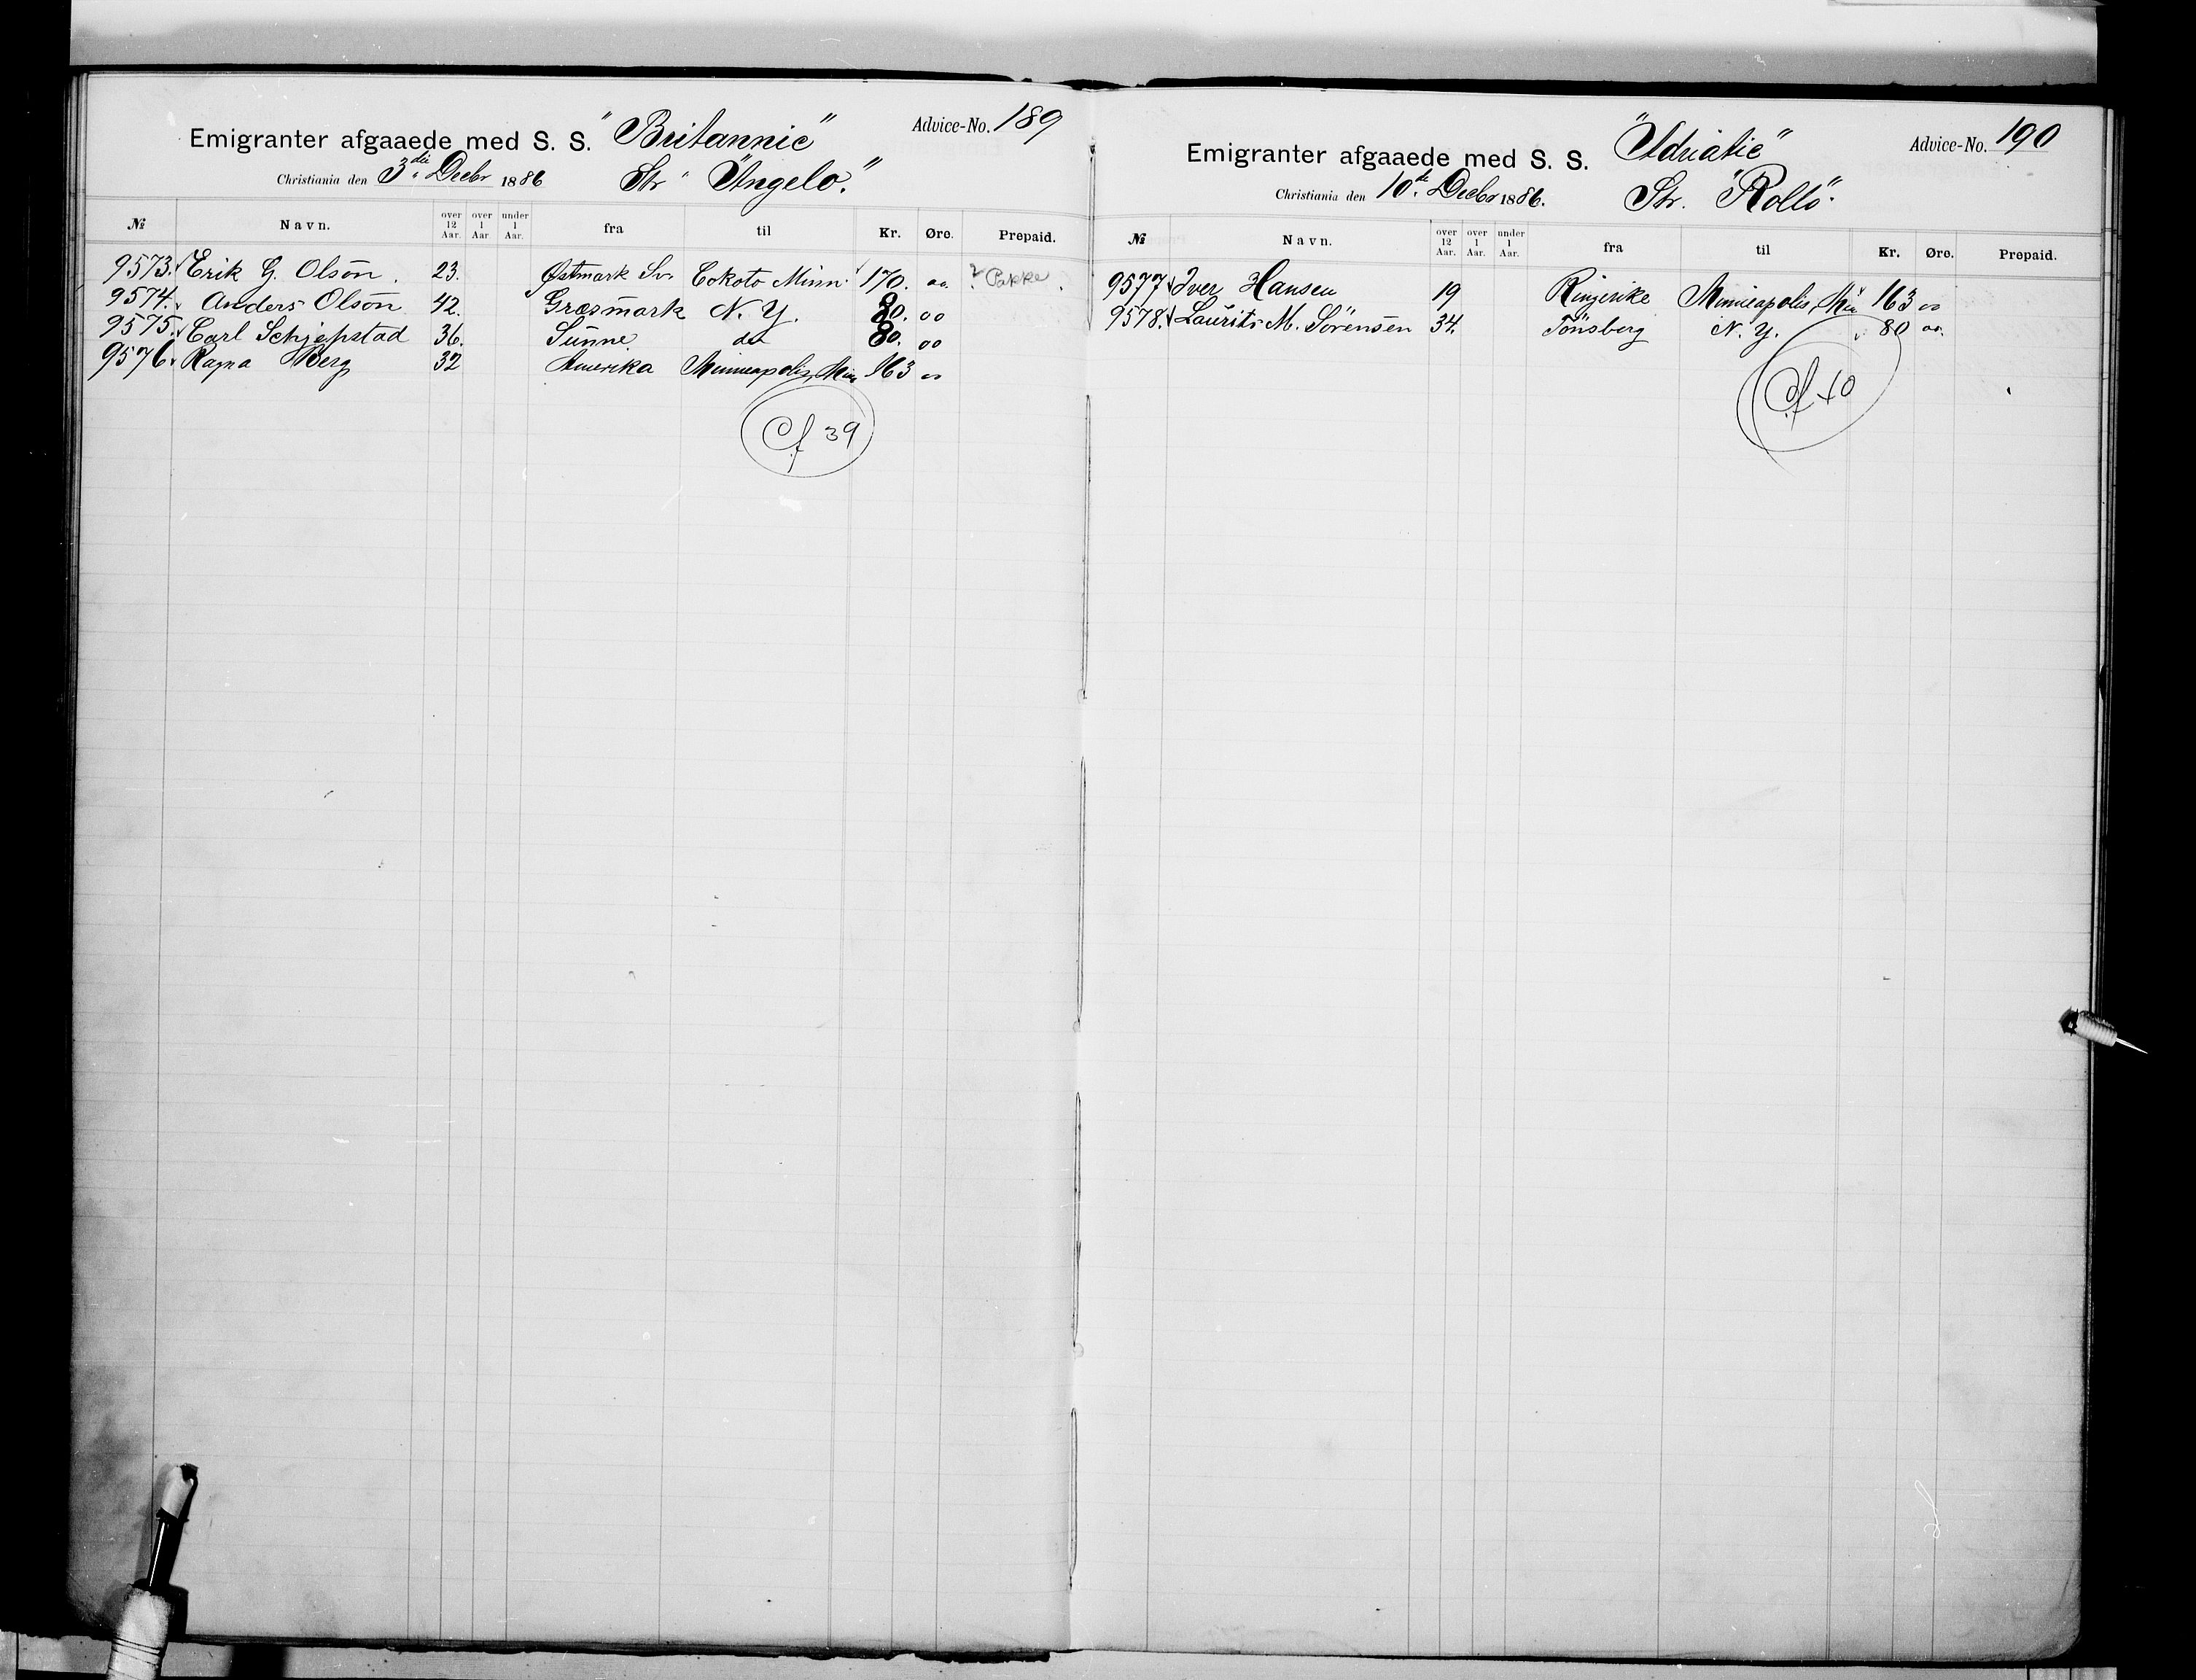 Emigranter afgaaede med S. S. "Britannic" Advice-No. 189
Christiania den 3die Decbr 1886 Str "Angelo."
№ Navn. over 12 Aar. over 1 Aar. under 1 Aar. fra til Kr. Øre. Prepaid.
9573. Erik G. Olsön. 23. Østmark Sv. Cokoto Minn. 170. 00. ? Pakke
9574. Anders Olsön 42. Græsmark N. Y. 80. 00
9575. Carl Schjepstad 36. Sunne do 80. 00
9576. Ragna Berg 32 Amerika Minneapolis, Min 163 00
Cf 39
Emigranter afgaaede med S. S. "Adriatic" Advice-No. 190
Christiania den 10de Decbr 1886. Str. "Rollo".
№ Navn. over 12 Aar. over 1 Aar. under 1 Aar. fra til Kr. Øre. Prepaid.
9577 Iver Hansen 19 Ringerike Minneapolis, Min 163 00
9578. Laurits M. Sörensen 34. Tönsberg N. Y. 80 00.
Cf 40